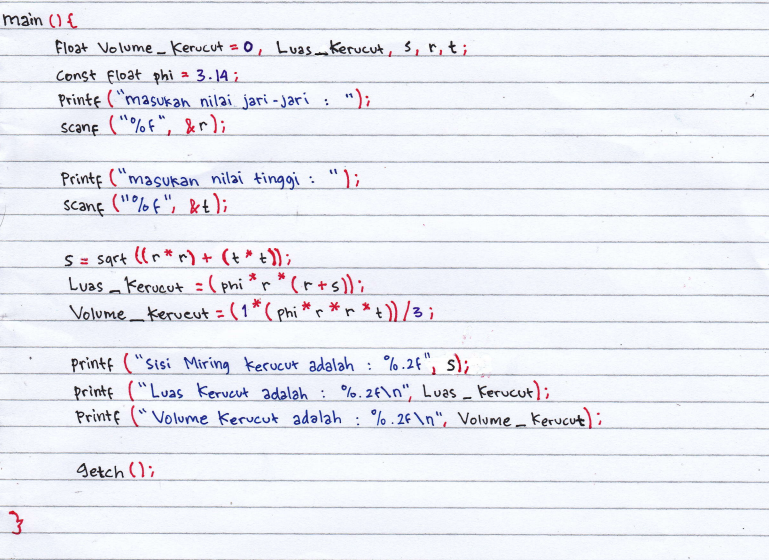 main () {
Float Volume_Kerucut = 0, Luas_Kerucut, s, r, t;
const float phi = 3.14;
Printf ("masukan nilai jari-jari : ");
scanf ("%f", &r);
Printf ("masukan nilai tinggi : ");
scanf ("%f", &t);
s = sqrt ((r*r) + (t*t));
Luas_Kerucut = (phi*r*(r+s));
Volume_Kerucut = (1*(phi*r*r*t))/3;
printf ("Sisi Miring Kerucut adalah : %.2f", s);
printf ("Luas Kerucut adalah : %.2f\n", Luas_Kerucut);
Printf ("Volume Kerucut adalah : %.2f\n", Volume_Kerucut);
getch ();
}